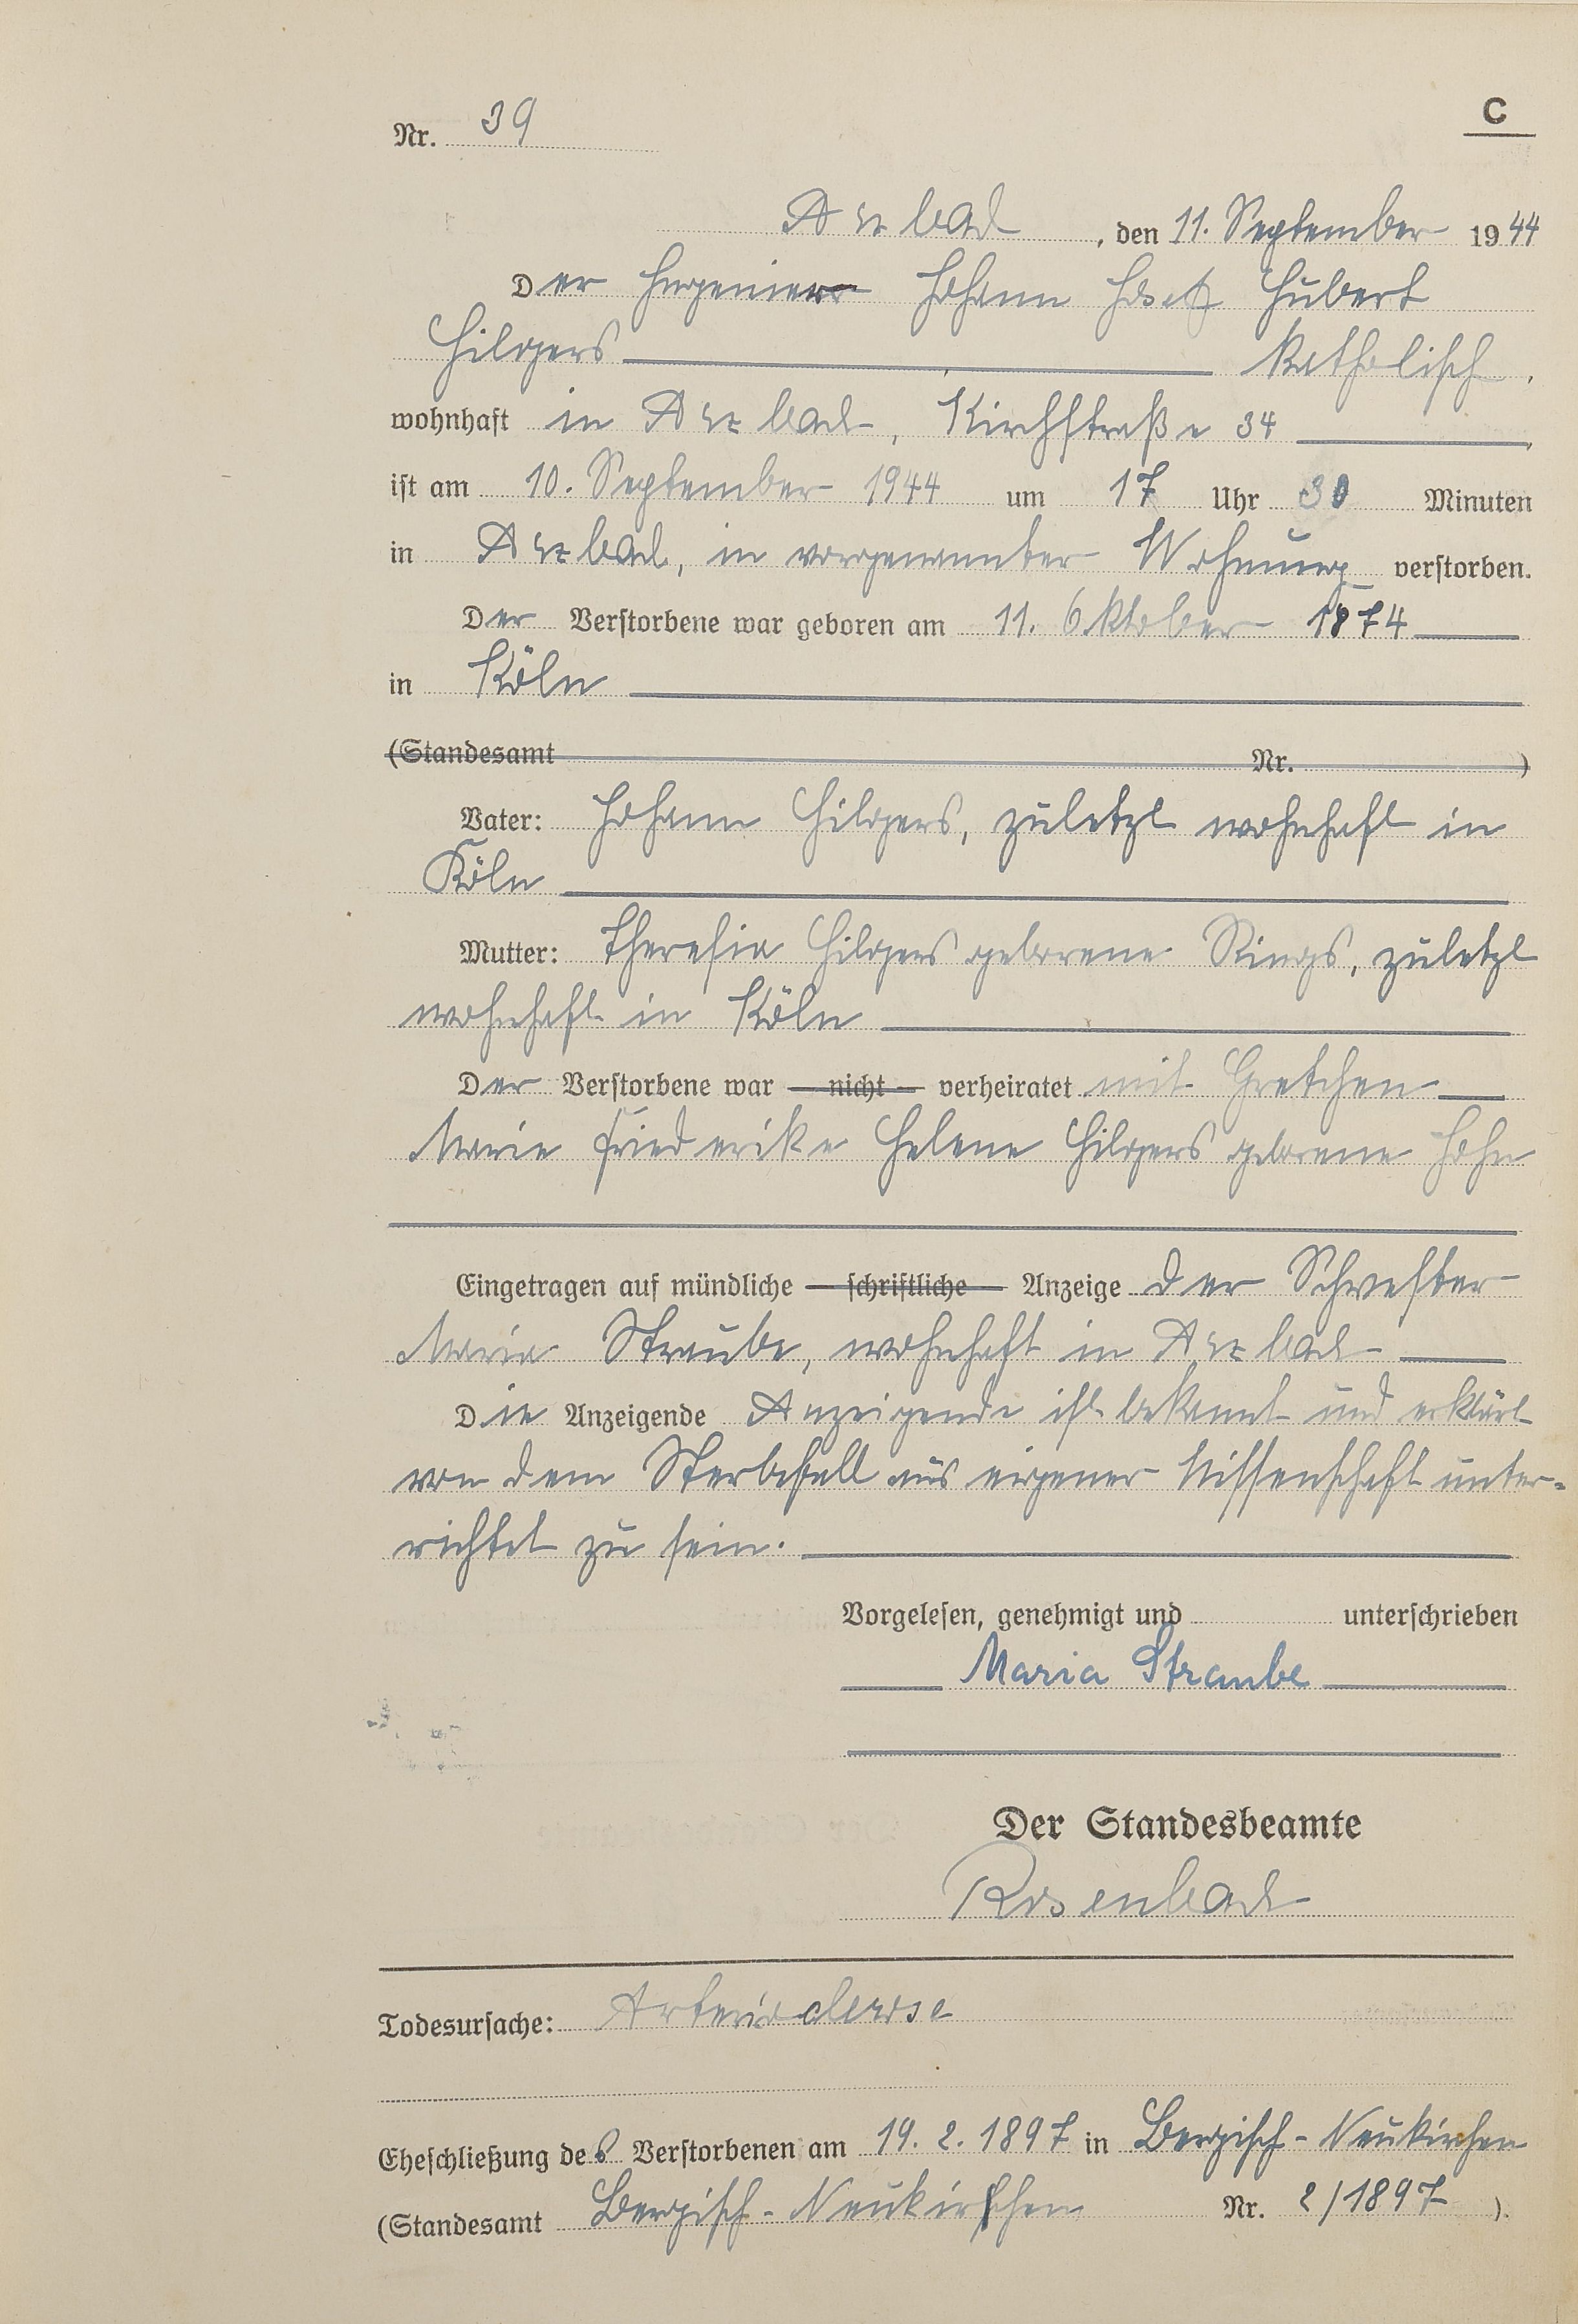 Nr. 39
C
Arzbach, den 11. September 1944
Der Ingenieur Johann Josef Hubert
Hilgers katholisch,
wohnhaft in Arzbach, Kirchstraße 34
ist am 10. September 1944 um 17 Uhr 30 Minuten
in Arzbach, in vorgenannter Wohnung verstorben.
Der Verstorbene war geboren am 11. Oktober 1874
in Köln
(Standesamt Nr. )
Vater: Johann Hilgers, zuletzt wohnhaft in
Köln
Mutter: Theresia Hilgers geborene Rings, zuletzt
wohnhaft in Köln
Der Verstorbene war — nicht — verheiratet mit Gretchen
Marie Friederike Helene Hilgers geborene John
Eingetragen auf mündliche — schriftliche — Anzeige der Schwester
Maria Straube, wohnhaft in Arzbach
Die Anzeigende Anzeigende ist bekannt und erklärt
von dem Sterbefall aus eigener Wissenschaft unter-
richtet zu sein.
Vorgelesen, genehmigt und unterschrieben
Maria Straube
Der Standesbeamte
Rosenbach
Todesursache: Arteriosclerose
Eheschließung des Verstorbenen am 19. 2. 1897 in Bergisch-Neukirchen
(Standesamt Bergisch-Neukirchen Nr. 2/1897 ).